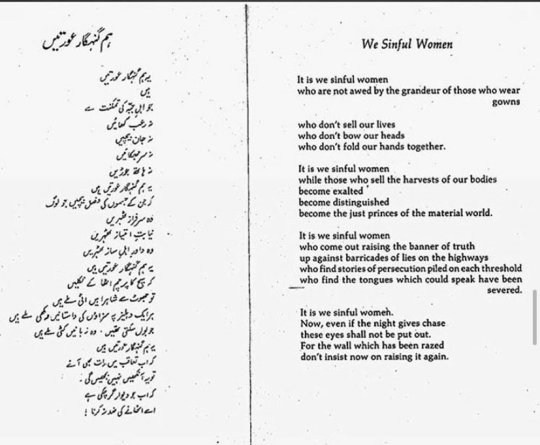 ہم گنہگار عورتیں
یہ ہم گنہگار عورتیں
ہیں
جو اہلِ جبّہ کی تمکنت سے
نہ رعب کھائیں
نہ جان بیچیں
نہ سر جھکائیں
نہ ہاتھ جوڑیں
یہ ہم گنہگار عورتیں ہیں
کہ جن کے جسموں کی فصل بیچیں جو لوگ
وہ سرفراز ٹھہریں
نیابتِ امتیاز ٹھہریں
وہ داورِ اہلِ ساز ٹھہریں
یہ ہم گنہگار عورتیں ہیں
کہ سچ کا پرچم اٹھا کے نکلیں
تو جھوٹ سے شاہراہیں اٹی ملے ہیں
ہر ایک دہلیز پہ سزاؤں کی داستانیں رکھی ملے ہیں
جو بول سکتی تھیں وہ زبانیں کٹی ملے ہیں
یہ ہم گنہگار عورتیں ہیں
کہ اب تعاقب میں رات بھی آئے
تو یہ آنکھیں نہیں بجھیں گی ۔
کہ اب جو دیوار گر چکی ہے
اسے اٹھانے کی ضد نہ کرنا !
We Sinful Women
It is we sinful women
who are not awed by the grandeur of those who wear
gowns
who don't sell our lives
who don't bow our heads
who don't fold our hands together.
It is we sinful women
while those who sell the harvests of our bodies
become exalted
become distinguished
become the just princes of the material world.
It is we sinful women
who come out raising the banner of truth
up against barricades of lies on the highways
who find stories of persecution piled on each threshold
who find the tongues which could speak have been
severed.
It is we sinful women.
Now, even if the night gives chase
these eyes shall not be put out.
For the wall which has been razed
don't insist now on raising it again.